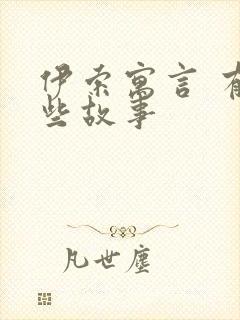 伊索寓言 有
些故事
凡世尘